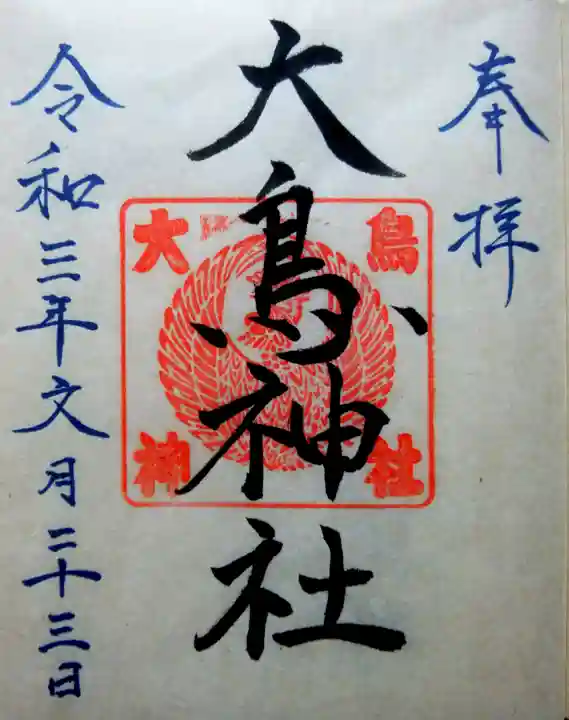 奉拝
大鳥神社
大鳥
神社
令和三年文月二十三日